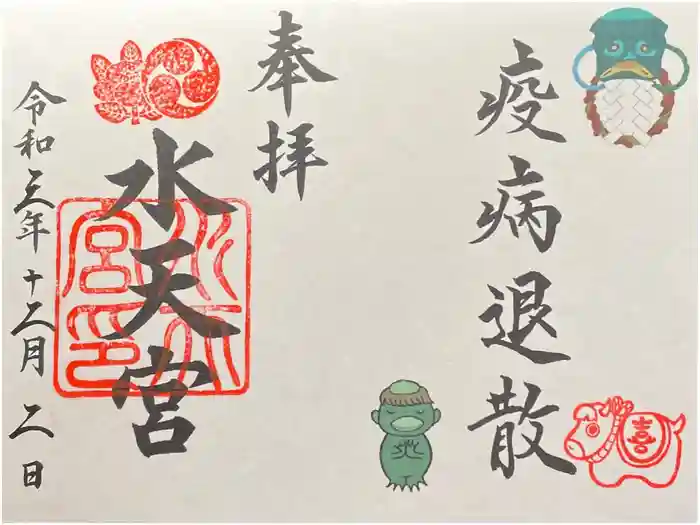 疫病退散
奉拝
水天宮
令和三年十二月二日
喜